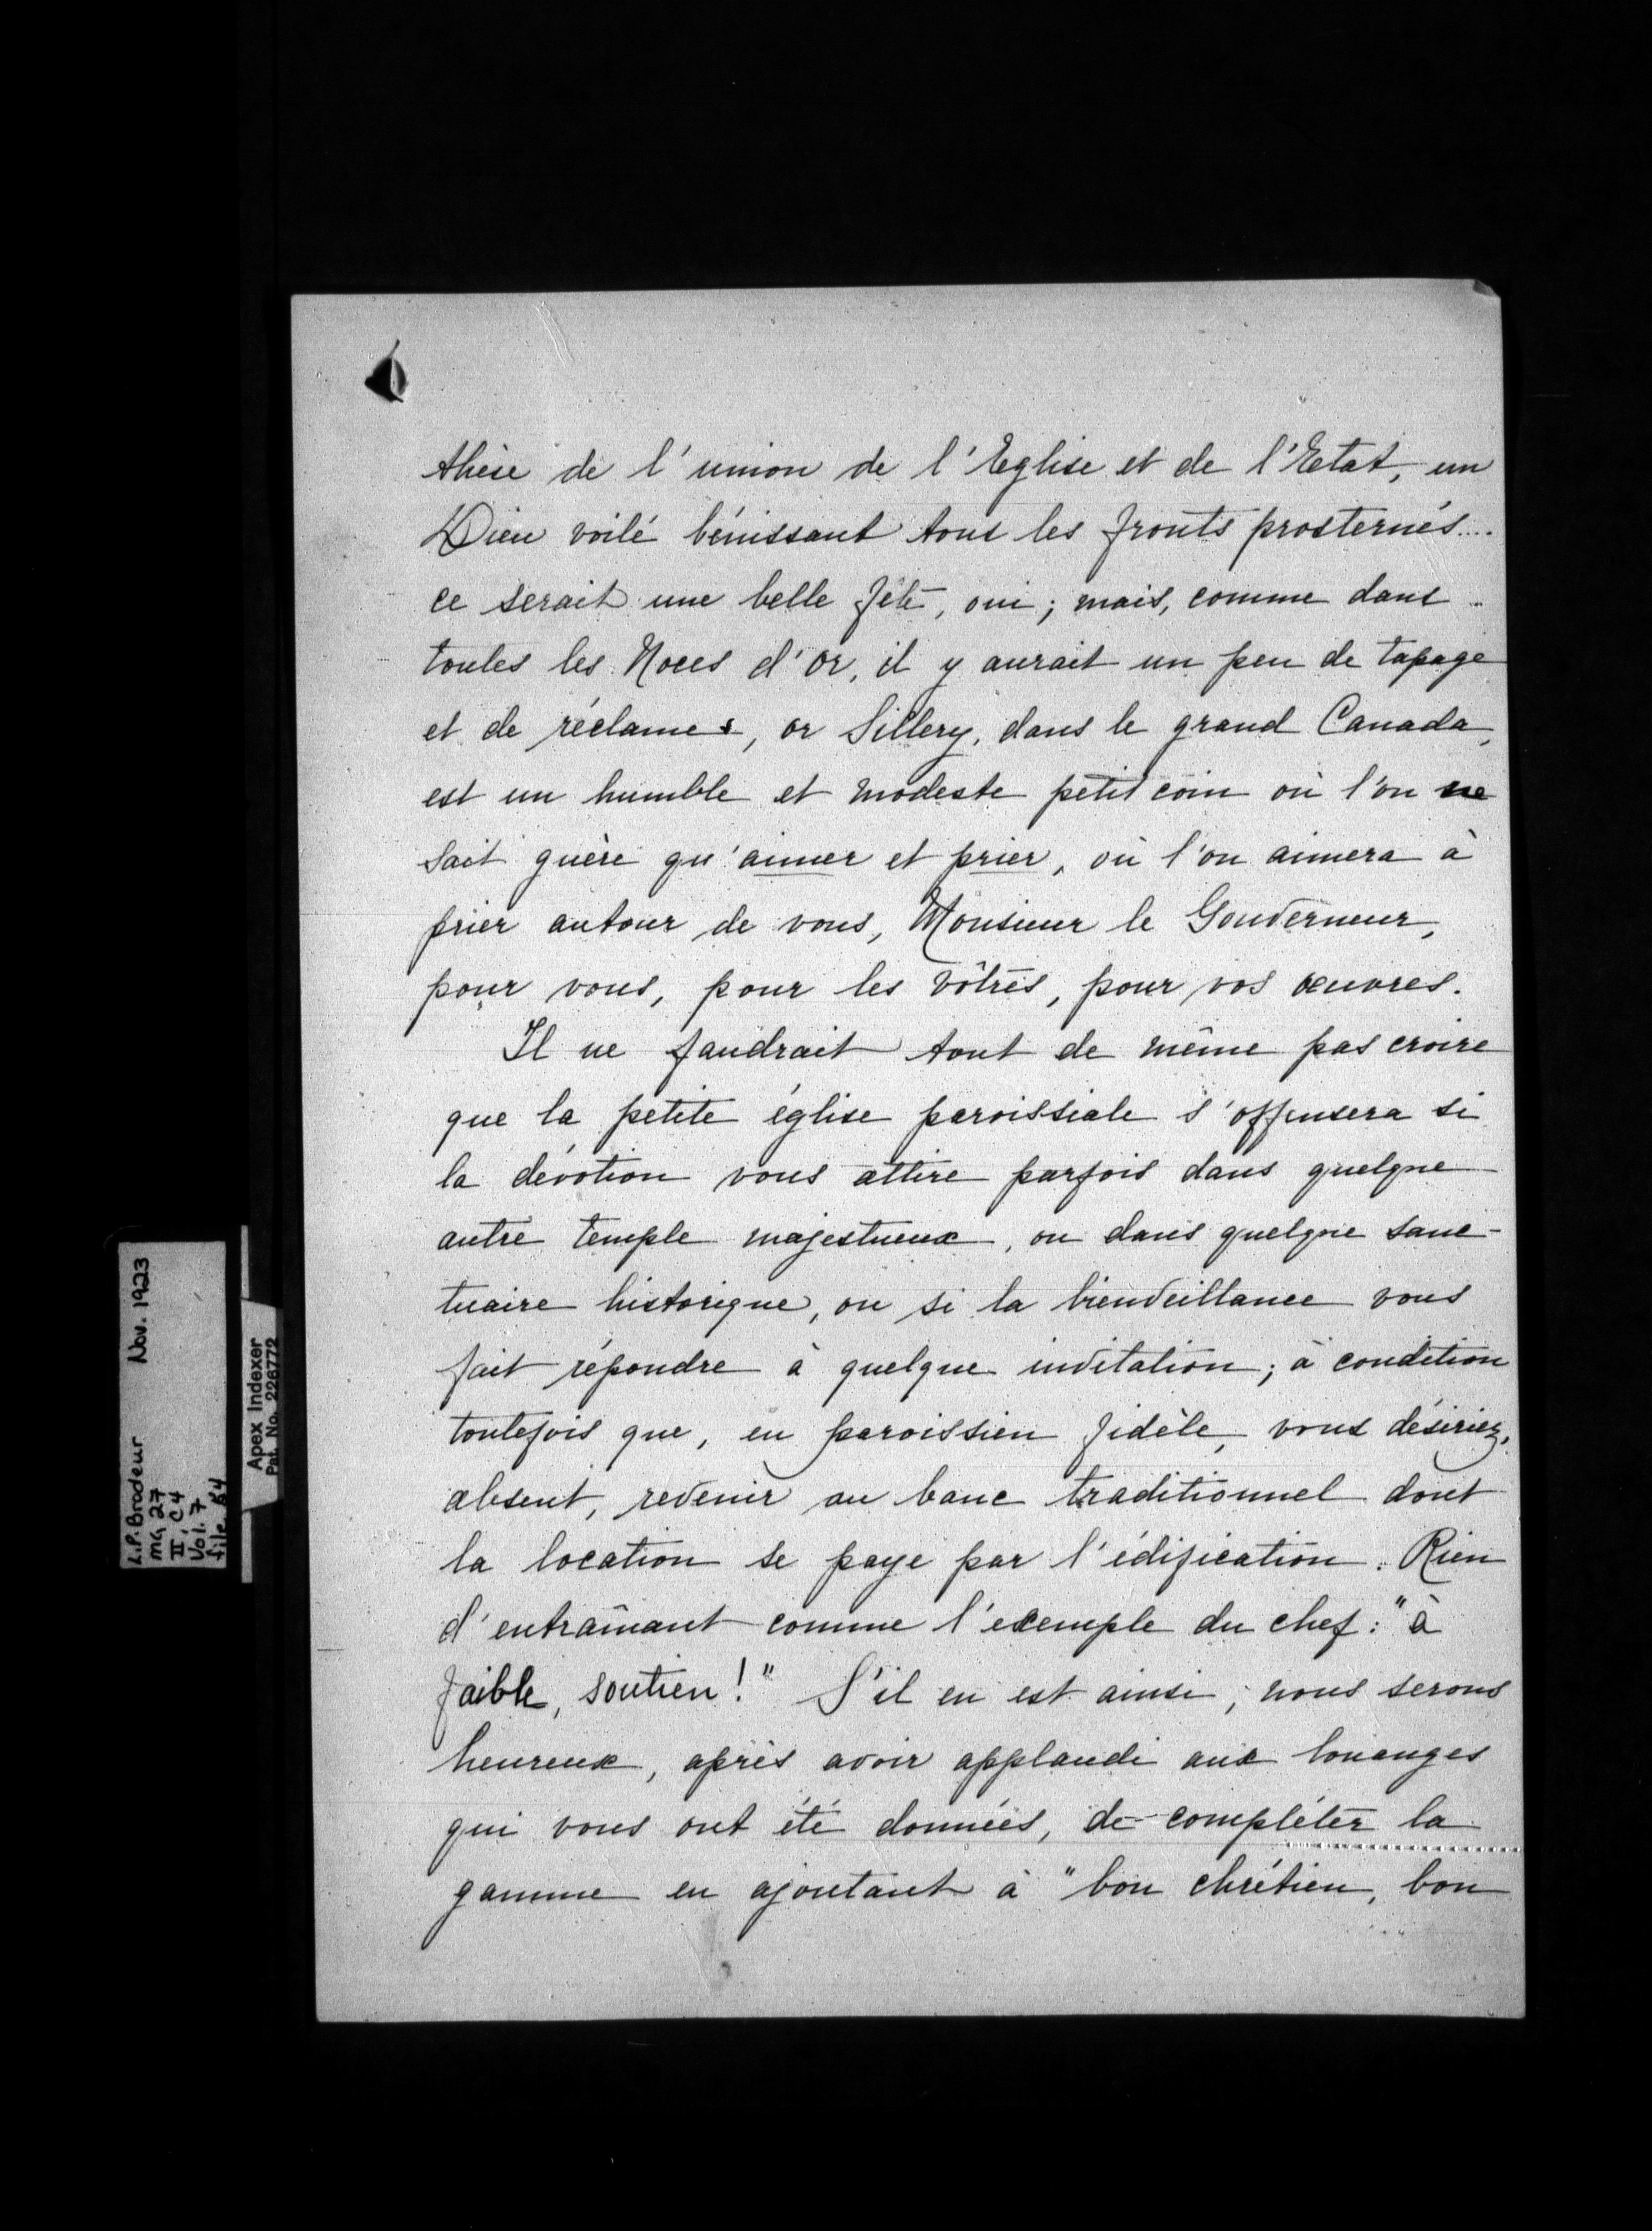 thèse de l'union de l'Eglise et de l'Etat, un
Dieu voilé bénissant tous les fronts prosternés....
ce serait une belle fête, oui; mais, comme dans
toutes les Noces d'Or, il y aurait un peu de tapage
et de réclames, or Sillery, dans le grand Canada,
est un humble et modeste petit coin où l'on ne
sait guère qu'aimer et prier, où l'on aimera à
prier autour de vous, Monsieur le Gouverneur,
pour vous, pour les vôtres, pour vos œuvres.
Il ne faudrait tout de même pas croire
que la petite église paroissiale s'offensera si
la dévotion vous attire parfois dans quelque
autre temple majestueux, ou dans quelque sanc-
tuaire historique, ou si la bienveillance vous
fait répondre à quelque invitation; à condition
toutefois que, en paroissien fidèle, vous désiriez,
absent, revenir au banc traditionnel dont
la location se paye par l'édification. Rien
d'entraînant comme l'exemple du chef: "à
faible, soutien!" S'il en est ainsi, nous serons
heureux, après avoir applaudi aux louanges
qui vous ont été données, de compléter la
gamme en ajoutant à "bon chrétien, bon
L.P. Brodeur Nov. 1923
MG 27
II, C4
Vol. 7
file 54
Apex Indexer
Pat. No. 226772